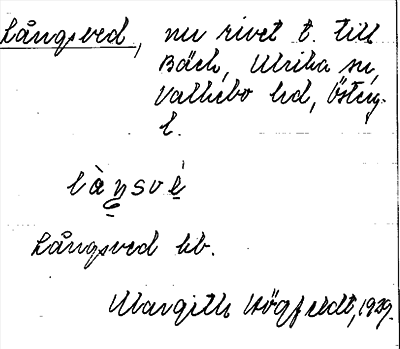 Långsved, nu rivet t. till
Bäck, Ulrika sn,
Valkebo hd, Östergl.
l.
làŋsvé
Långsved kb.
Margith Högfeldt, 1929.